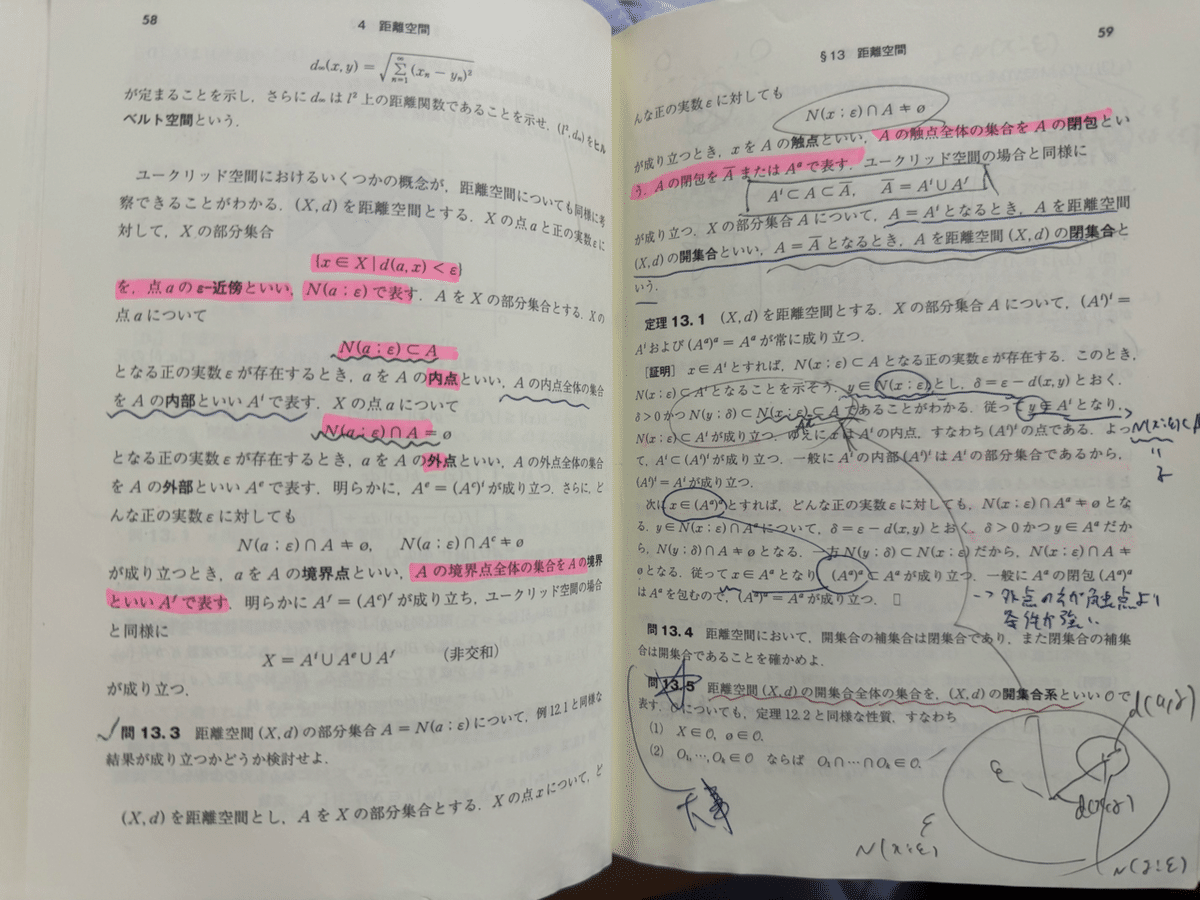 58
4 距離空間
d∞(x, y) = √ ∞ Σ n=1 (xₙ − yₙ)²
が定まることを示し，さらに d∞ は l² 上の距離関数であることを示せ．(l², d∞) をヒル
ベルト空間という．
ユークリッド空間におけるいくつかの概念が，距離空間についても同様に考
察できることがわかる．(X, d) を距離空間とする．X の点 a と正の実数 ε に
対して，X の部分集合
{x ∈ X | d(a, x) < ε}
を，点 a の ε-近傍といい，N(a ; ε) で表す．A を X の部分集合とする．X の
点 a について
N(a ; ε) ⊂ A
となる正の実数 ε が存在するとき，a を A の内点といい，A の内点全体の集合
を A の内部といい Aⁱ で表す．X の点 a について
N(a ; ε) ∩ A = ø
となる正の実数 ε が存在するとき，a を A の外点といい，A の外点全体の集合
を A の外部といい Aᵉ で表す．明らかに，Aᵉ = (Aᶜ)ⁱ が成り立つ．さらに，ど
んな正の実数 ε に対しても
N(a ; ε) ∩ A ≠ ø， N(a ; ε) ∩ Aᶜ ≠ ø
が成り立つとき，a を A の境界点といい，A の境界点全体の集合を A の境界
といい Aᶠ で表す．明らかに Aᶠ = (Aᶜ)ᶠ が成り立ち，ユークリッド空間の場合
と同様に
X = Aⁱ ∪ Aᵉ ∪ Aᶠ （非交和）
が成り立つ．
問 13.3 距離空間 (X, d) の部分集合 A = N(a ; ε) について，例 12.1 と同様な
結果が成り立つかどうか検討せよ．
(X, d) を距離空間とし，A を X の部分集合とする．X の点 x について，ど
§13 距離空間
59
んな正の実数 ε に対しても
N(x ; ε) ∩ A ≠ ø
が成り立つとき，x を A の触点といい，A の触点全体の集合を A の閉包とい
う．A の閉包を A̅ または Aᵃ で表す．ユークリッド空間の場合と同様に
Aⁱ ⊂ A ⊂ A̅， A̅ = Aⁱ ∪ Aᶠ
が成り立つ．X の部分集合 A について，A = Aⁱ となるとき，A を距離空間
(X, d) の開集合といい，A = A̅ となるとき，A を距離空間 (X, d) の閉集合と
いう．
定理 13.1 (X, d) を距離空間とする．X の部分集合 A について，(Aⁱ)ⁱ =
Aⁱ および (Aᵃ)ᵃ = Aᵃ が常に成り立つ．
［証明］ x ∈ Aⁱ とすれば，N(x ; ε) ⊂ A となる正の実数 ε が存在する．このとき，
N(x ; ε) ⊂ Aⁱ となることを示そう．y ∈ N(x ; ε) とし，δ = ε − d(x, y) とおく．
δ > 0 かつ N(y ; δ) ⊂ N(x ; ε) ⊂ A であることがわかる．従って y ∈ Aⁱ となり，
N(x ; ε) ⊂ Aⁱ が成り立つ．ゆえに x は Aⁱ の内点，すなわち (Aⁱ)ⁱ の点である．よっ
て，Aⁱ ⊂ (Aⁱ)ⁱ が成り立つ．一般に Aⁱ の内部 (Aⁱ)ⁱ は Aⁱ の部分集合であるから，
(Aⁱ)ⁱ = Aⁱ が成り立つ．
次に x ∈ (Aᵃ)ᵃ とすれば，どんな正の実数 ε に対しても，N(x ; ε) ∩ Aᵃ ≠ ø とな
る．y ∈ N(x ; ε) ∩ Aᵃ について，δ = ε − d(x, y) とおく．δ > 0 かつ y ∈ Aᵃ だか
ら，N(y ; δ) ∩ A ≠ ø となる．一方 N(y ; δ) ⊂ N(x ; ε) だから，N(x ; ε) ∩ A ≠
ø となる．従って x ∈ Aᵃ となり (Aᵃ)ᵃ ⊂ Aᵃ が成り立つ．一般に Aᵃ の閉包 (Aᵃ)ᵃ
は Aᵃ を包むので，(Aᵃ)ᵃ = Aᵃ が成り立つ． □
→ 外点の方が触点より
条件が強い
問 13.4 距離空間において，開集合の補集合は閉集合であり，また閉集合の補集
合は開集合であることを確かめよ．
問 13.5 距離空間 (X, d) の開集合全体の集合を，(X, d) の開集合系といい O で
表す．O についても，定理 12.2 と同様な性質，すなわち
(1) X ∈ O, ø ∈ O.
(2) O₁, ⋯, Oₖ ∈ O ならば O₁ ∩ ⋯ ∩ Oₖ ∈ O.
大事
ε
N(x:ε)